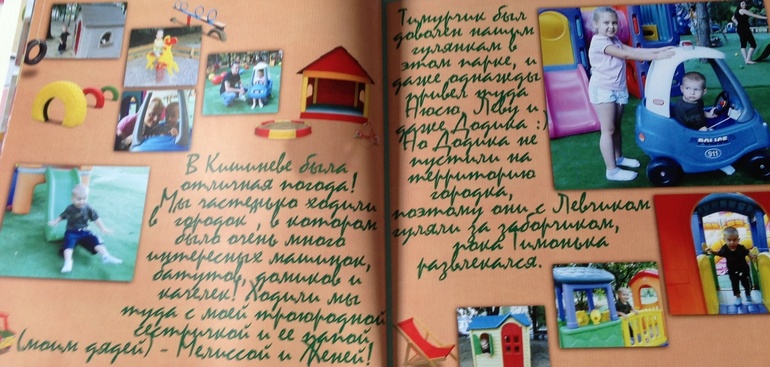 В Кишиневе была
отличная погода!
Мы частенько ходили
в городок, в котором
было очень много
интересных машинок,
батутов, домиков и
качелек! Ходили мы
туда с моей троюродной
сестричкой и ее папой
(моим дядей) - Мелиссой и Женей!
Тимурчик был
доволен нашим
гулянкам в
этом парке, и
даже однажды
привел туда
Нюсю, Леву и
даже Додика :)
Но Додика не
пустили на
территорию
городка,
поэтому они с Левчиком
гуляли за заборчиком,
пока Тимонька
развлекался.
POLICE
911